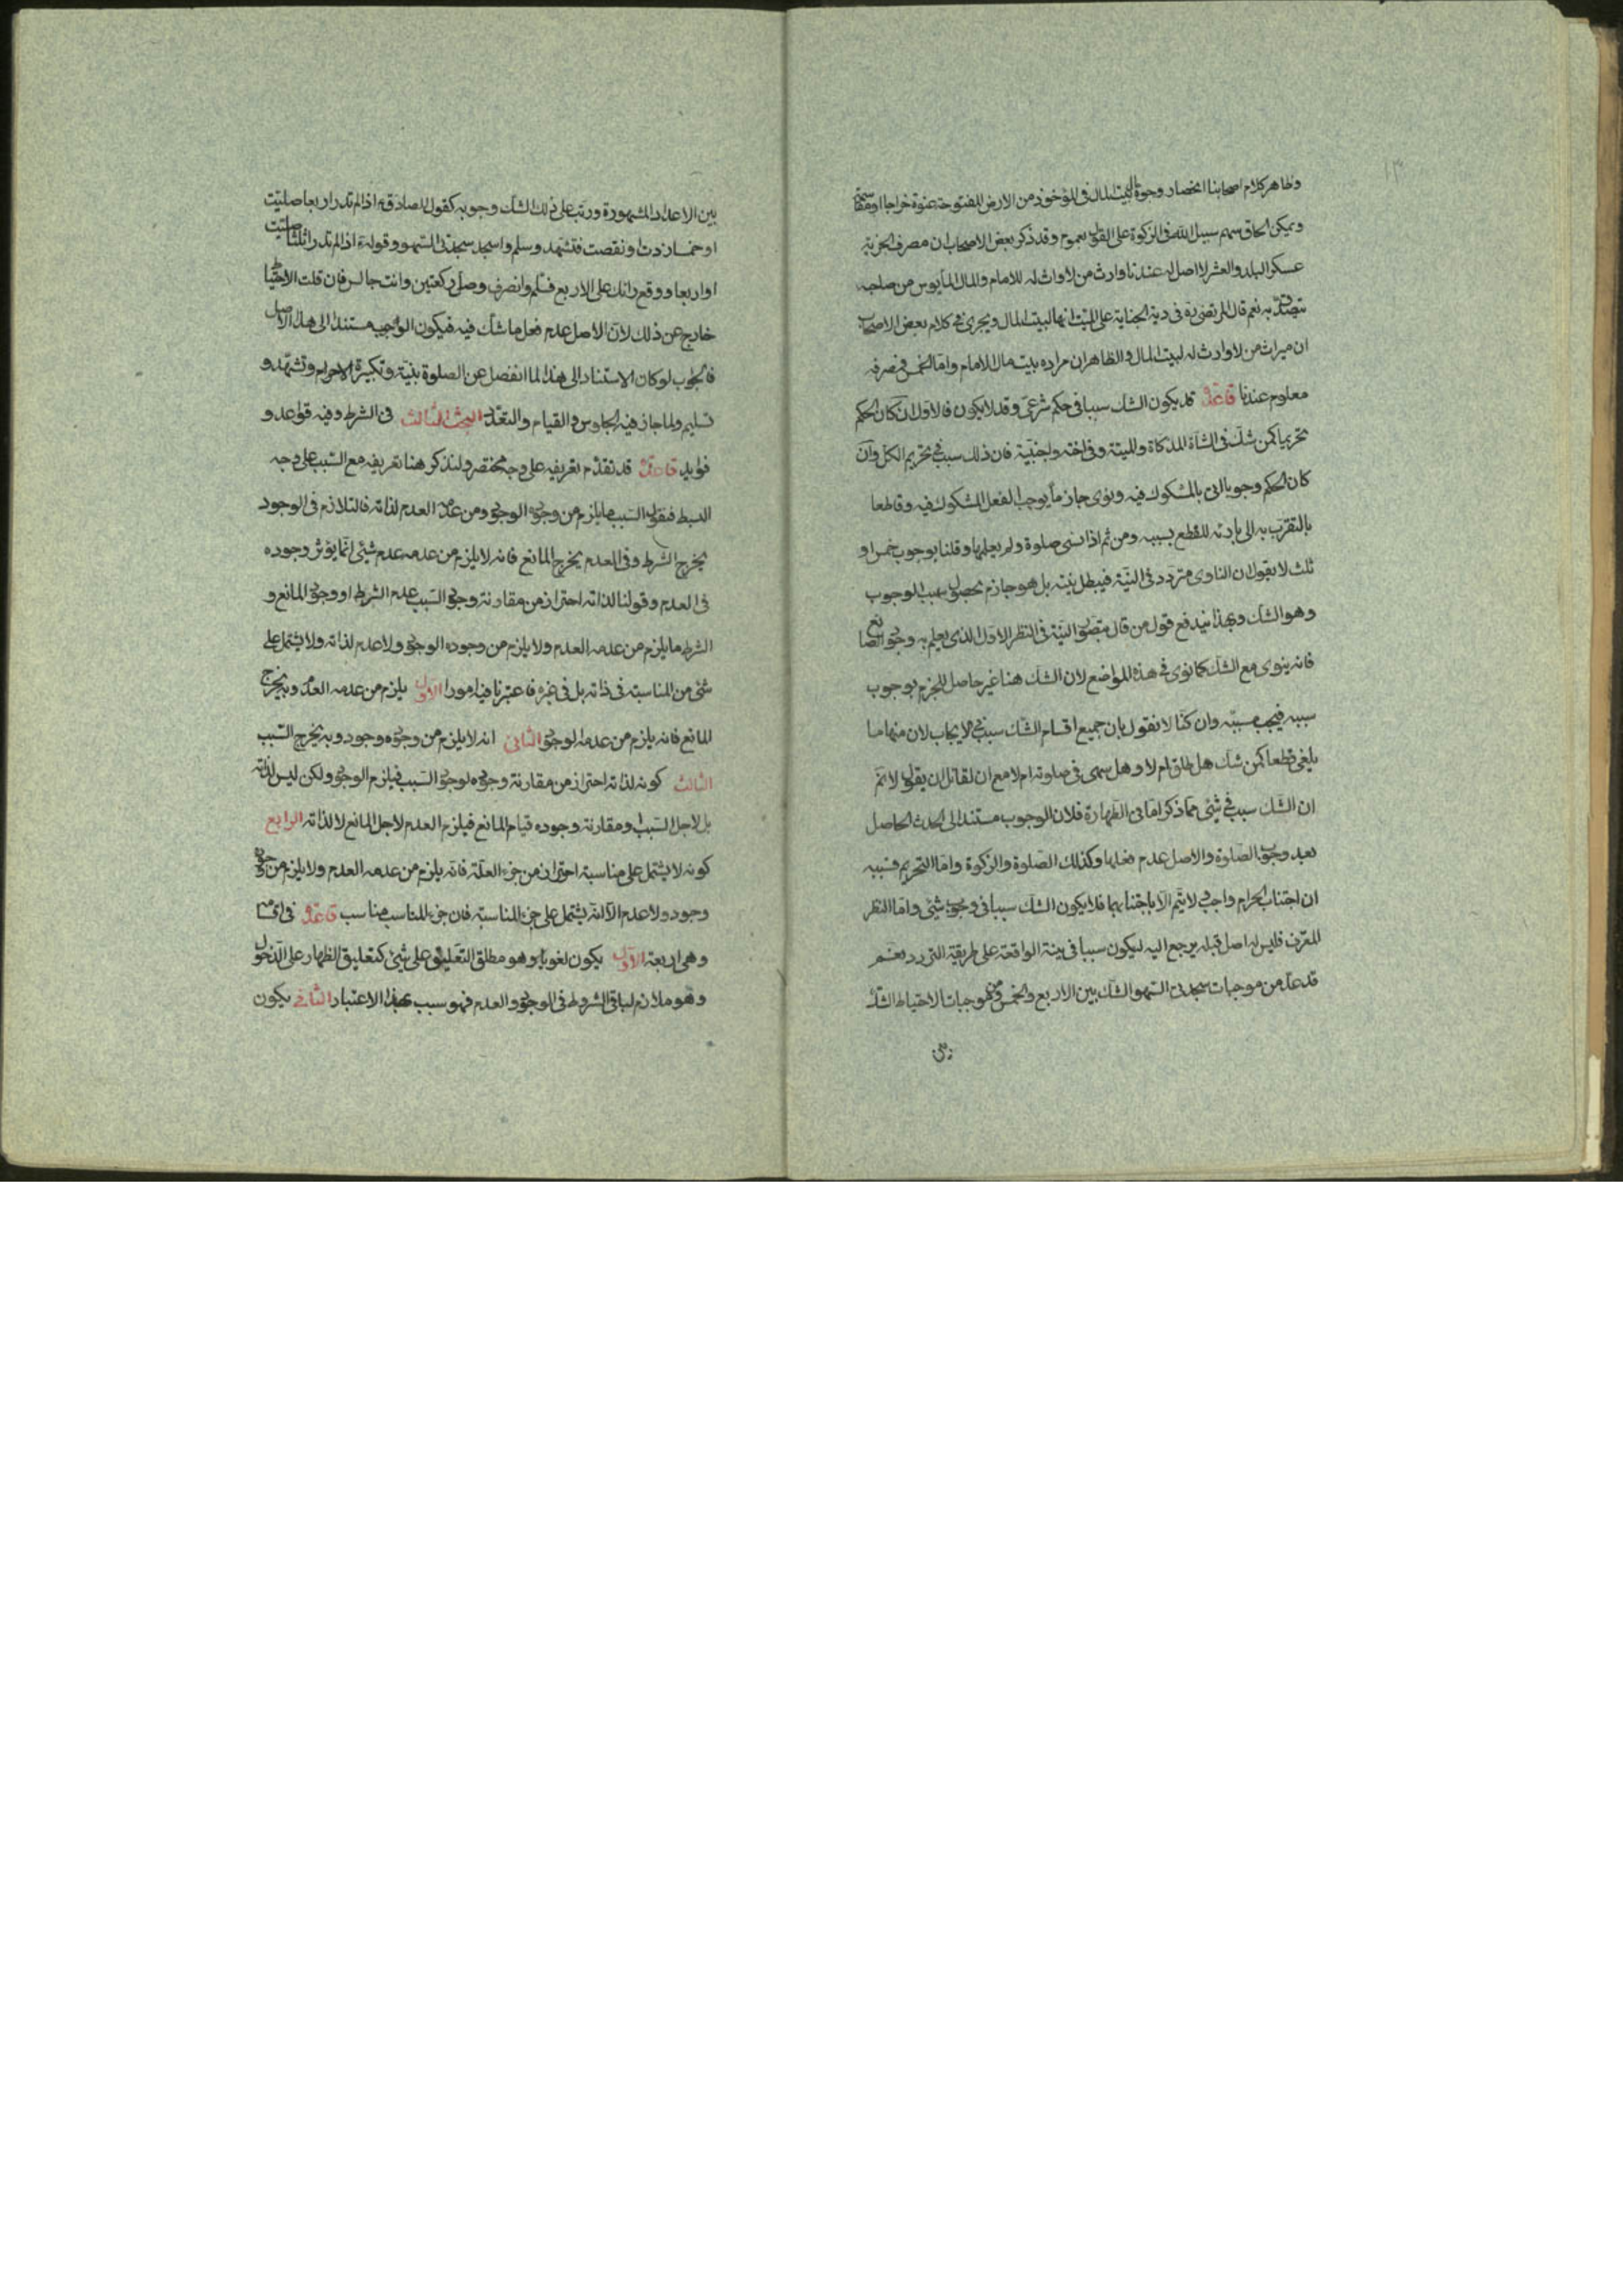 ١٣
وظاهر كلام اصحابنا انحصار وجوه البيت المال فى المؤخوذ من الارض المفتوحة عنوة خراجا او مقاسمة
ويمكن الحاق سهم سبيل الله فى الزكوة على القول بعموم وقد ذكر بعض الاصحاب ان مصرف الجزية
عسكر البلد والعشر لا اصل له عندنا وارث من لا وارث له للامام والمال المأيوس من صاحبه
يتصدق به نعم قال المرتضى ره فى دية الجناية على الميت انها لبيت المال ويجرى فى كلام بعض الاصحاب
ان ميراث من لا وارث له لبيت المال والظاهر ان مراده بيت مال الامام واما الخمس فمصرفه
معلوم عندنا قاعدة قد يكون الشك سببا فى حكم شرعى وقد لا يكون فالاول ان كان الحكم
تحريميا كمن شك فى الشاة المذكاة والميتة وفى اخته واجنبية فان ذلك سبب فى تحريم الكل وان
كان الحكم وجوبيا اتى بالمشكوك فيه ونوى جازما بوجوب الفعل المشكوك فيه وقاطعا
بالتقرب به الى بارئه للقطع بسببه ومن ثم اذا نسى صلوة ولم يعلمها وقلنا بوجوب خمس او
ثلث لا يقول ان الناوى متردد فى النية فيبطل نيته بل هو جازم بحصول سبب الوجوب
وهو الشك وبهذا يندفع قول من قال متصور النية فى النظر الاول الذى يعلم به وجود الصانع
فانه ينوى مع الشك كما نوى فى هذه المواضع لان الشك هنا غير حاصل للجزم بوجوب
سببه فيجب مسببه وان كنا لا نقول بان جميع اقسام الشك سبب فى الايجاب لان منها ما
يلغى قطعا كمن شك هل طلق ام لا وهل سهى فى صلوته ام لا مع ان لقائل ان يقول لا نم
ان الشك سبب فى شئ مما ذكر اما فى الطهارة فلان الوجوب مستند الى الحدث الحاصل
بعد وجوب الصلوة والاصل عدم فعلها وكذلك الصلوة والزكوة واما التحريم فسببه
ان اجتناب الحرام واجب لا يتم الا باجتنابهما فلا يكون الشك سببا فى وجوب شئ واما النظر
المعرف فليس له اصل قبله يرجع اليه ليكون سببا فى نية الواقعة على طريقة التردد نعم
قد عد من موجبات سجدتى السهو الشك بين الاربع والخمس ومن موجبات الاحتياط الشك
بين الاعداد المشهورة ورتب على ذلك الشك وجوبه كقول الصادق ع اذا لم تدر اربعا صليت
او خمسا زدت او نقصت فتشهد وسلم واسجد سجدتى السهو وقوله ع اذا لم تدر اثلثا صليت
او اربعا ووقع رأيك على الاربع فسلم وانصرف وصل ركعتين وانت جالس فان قلت الاحتياط
خارج عن ذلك لان الاصل عدم فعل ما شك فيه فيكون الوجوب مستندا الى هذا الاصل
فالجواب لو كان الاستناد الى هذا لما انفصل عن الصلوة بنية وتكبيرة الاحرام وتشهد و
تسليم ولما جاز فيه الجلوس والقيام والتعدد البحث الثالث فى الشرط وفيه قواعد و
فوايد قاعدة قد تقدم تعريفه على وجه مختصر ولنذكر هنا تعريفه مع السبب على وجه
البسط فنقول السبب ما يلزم من وجوده الوجود ومن عدمه العدم لذاته فالتلازم فى الوجود
يخرج الشرط وفى العدم يخرج المانع فانه لا يلزم من عدمه عدم شيئ انما يؤثر وجوده
فى العدم وقولنا لذاته احتراز من مقارنة وجود السبب عدم الشرط او وجود المانع و
الشرط ما يلزم من عدمه العدم ولا يلزم من وجوده الوجود ولا عدم لذاته ولا يشتمل على
شئ من المناسبة فى ذاته بل فى غيره فاعتبرنا فيه امورا الاول يلزم من عدمه العدم ويخرج
المانع فانه يلزم من عدمه الوجود الثانى انه لا يلزم من وجوده وجود وبه يخرج السبب
الثالث كونه لذاته احتراز من مقارنة وجوده لوجود السبب فيلزم الوجود ولكن ليس لذاته
بل لاجل السبب او مقارنة وجوده قيام المانع فيلزم العدم لاجل المانع لا لذاته الرابع
كونه لا يشتمل على مناسبة احتراز من جزء العلة فانه يلزم من عدمه العدم ولا يلزم من وجوده
وجود ولا عدم الا انه يشتمل على جزء المناسبة فان جزء المناسب مناسب قاعدة فى اقسامه
وهى اربعة الاول يكون لغويا وهو مطلق التعليق على شئ كتعليق الظهار على الدخول
وهو ملازم لباقى الشروط فى الوجود والعدم فهو سبب بهذا الاعتبار الثانى يكون